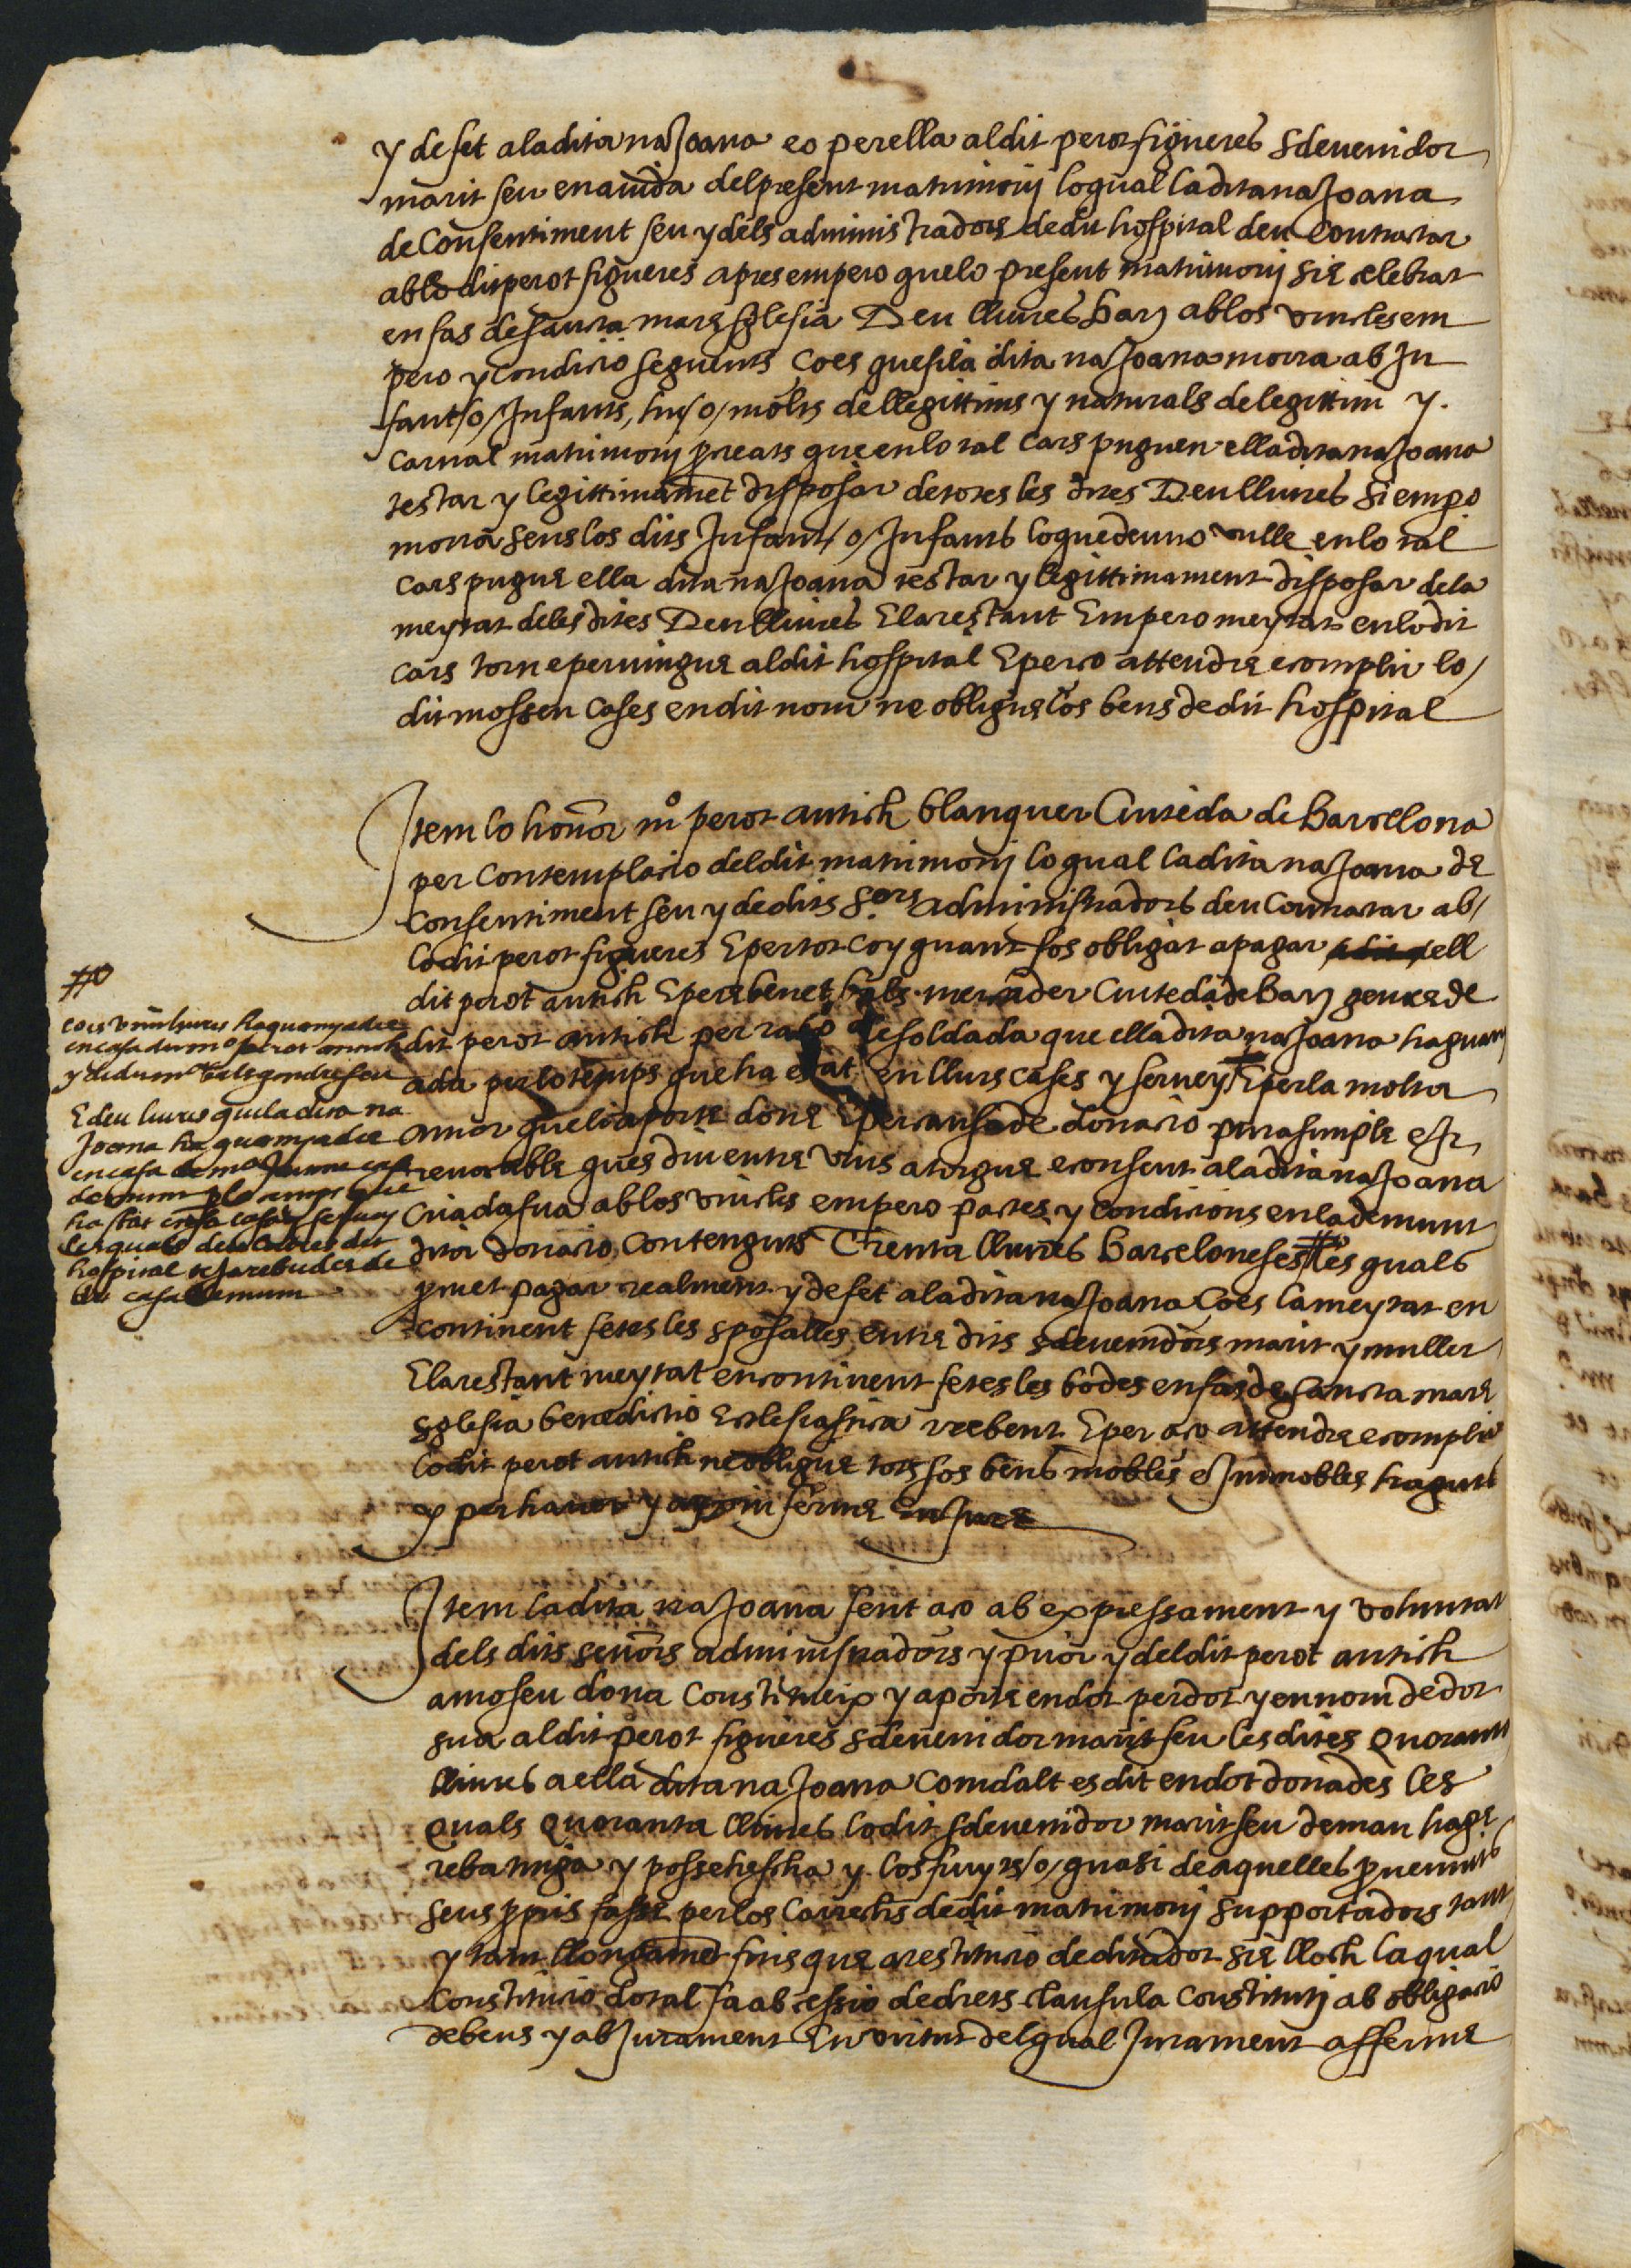 y de fet a la dita na Joana eo per ella al dit perot figueres sdevenidor
marit seu en aiuda del present matrimonj lo qual la dita na Joana
de Consentiment seu y dels administradors de dit hospital deu Contractar
ab lo dit perot figueres apres empero que lo present matrimonj sie celebrat
en fas de sancta mare sglesia Deu lliures barz ab los vincles em
pero y condicio seguents Coes que si la dita na Joana morra ab In
fant /o/ Infants, hu /o/ molts de llegittims y naturals de legittim y
carnal matrimonj procreats que en lo tal cars puguen ella dita na Joana
testar y legittimamet disposar de totes les dites Deu lliures Si empo
morra sens los dits Infant /o/ Infants lo que deu no vulle en lo tal
cars pugue ella dita na Joana testar y legittimament disposar de la
meytat de les dites Deu lliures E la restant Empero meytat en lo dit
cars torn e pervingue al dit hospital E per ço attendre e complir lo
dit mossen Cases en dit nom ne obligue los bens de dit hospital
Item lo honor mo perot antich blanquer Ciuteda de Barcellona
per Contemplacio del dit matrimonj lo qual la dita na Joana de
Consentiment seu y de dits Sors administradors deu Contractar ab
lo dit perot figueres E per tot ço y quant fos obligat a pagar ell
dit perot antich E pere benet mercader Ciuteda de Barz genre de
dit perot antich per raho de soldada que ella dita na Joana haguany
ada per lo temps que ha estat en llurs cases y servey E per la molta
amor que li aporte done E per causa de donacio pura simple e Ir
revocable ques diu entre vius atorgue e consent a la dita na Joana
Criada sua ab los vincles empero pactes y condicions en la demunt
dita donacio Contenguts Trenta lliures Barceloneses # les quals
promet pagar realment y de fet a la dita na Joana Coes la meytat en
continent fetes les sposalles entre dits sdevenidors marit y muller
E la restant meytat encontinent fetes les bodes en fas de sancta mare
sglesia benedictio Eclesiastica reebent E per aço attendre e complir
lo dit perot antich ne obligue tots sos bens mobles e Inmobles haguts
y per haver y axi ferme en Jure
#
Coes vint lliures ha guanyades
en casa de mo perot antich
y de dit gendre seu
E deu lliures que la dita na
Joana ha guanyades
en casa de mo
damunt per lo temps que
ha stat en sa casa y servey
les quals deu lliures dit
hospital te ja rebudes de
dit casa demunt
Item la dita na Joana fent aço ab expressament y voluntat
dels dits senors administradors y prior y del dit perot antich
amo seu dona Constitueix y aporte en dot per dot y en nom de dot
sua al dit perot figueres sdevenidor marit seu les dites Quoranta
lliures a ella dita na Joana Com dalt es dit en dot donades les
quals Quoranta lliures lo dit sdevenidor marit seu deman hage
reba tinga y possehescha y los fruyts /o/ quasi de aquelles pvenints
seus ppris fasse per los Carrechs de dit matrimonj supportadors tant
y tant llongamet fins que a restitucio de dita dot sie lloch la qual
Constitucio dotal fa ab cessio de drets clausula Constitutj ab obligacio
de bens y ab Jurament En virtut del qual Jurament afferme